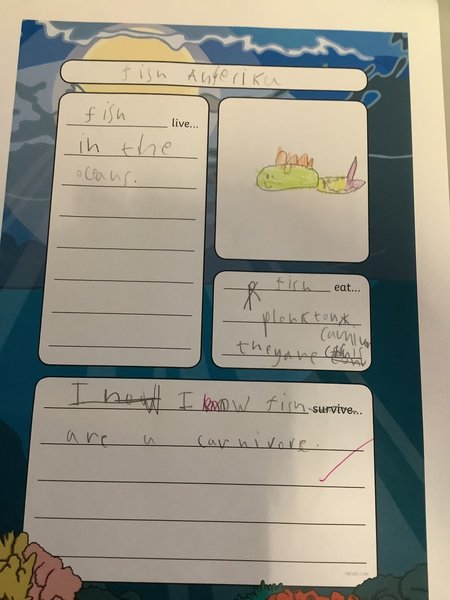 fish
fish live...
in the
oceans.
fish eat...
planktonx
they are
I now I know fish survive...
are a carnivore.